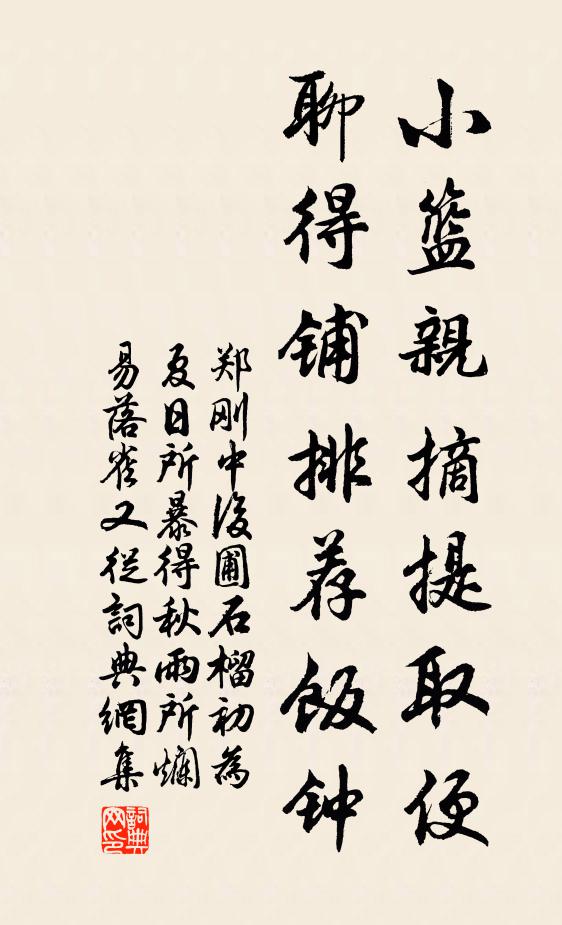 小籃親摘提取便
聊得铺排荐飯钟
郑刚中後圃石榴初為
夏日所暴得秋雨所爛
易落雀又從詞典網集
詞典网印